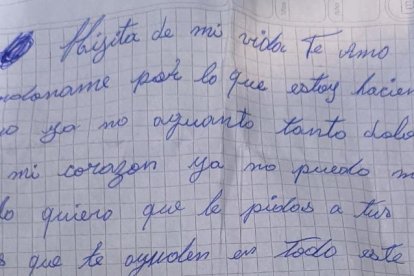 Hijita de mi vida Te Amo
perdoname por lo que estoy hacien
yo ya no aguanto tanto dolo
mi corazon ya no puedo m
lo quiero que le pidas a tus
que te ayuden en Todo este